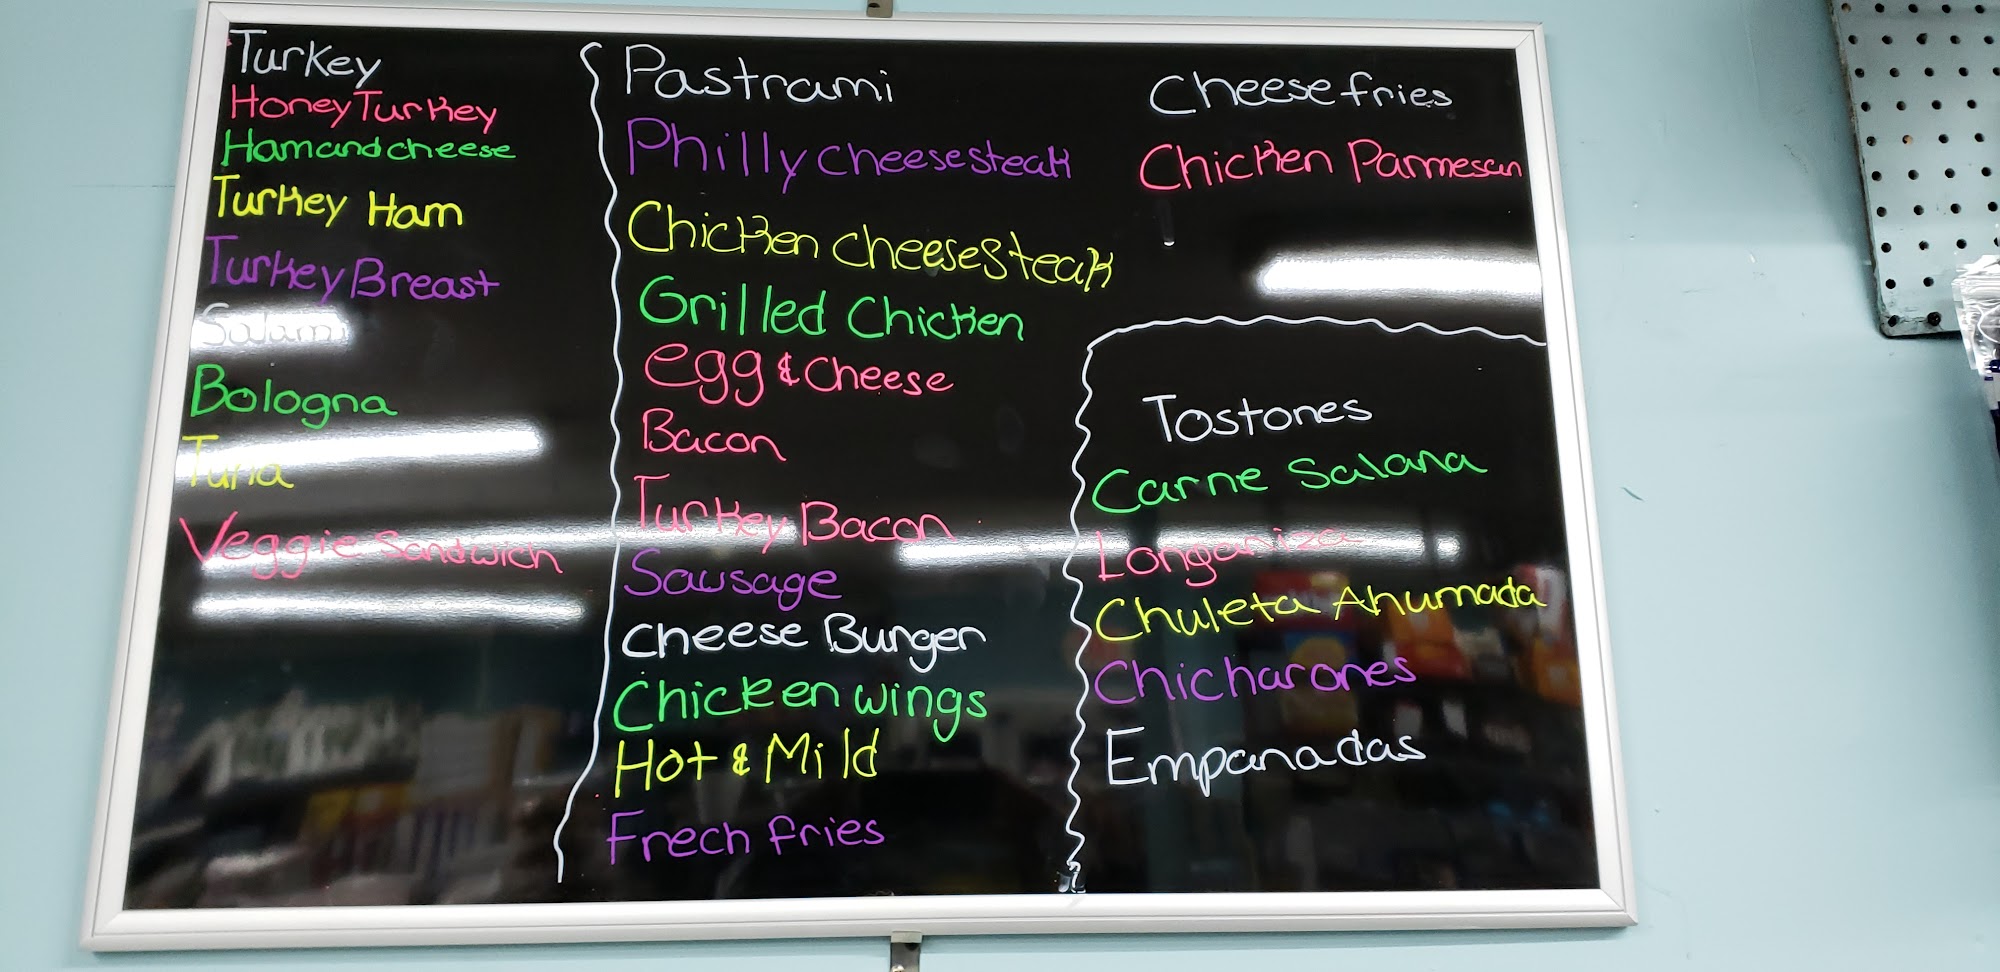 Turkey
Honey Turkey
Ham and cheese
Turkey Ham
Turkey Breast
Salami
Bologna
Tuna
Veggie Sandwich
Pastrami
Philly cheese steak
Chicken cheese steak
Grilled Chicken
egg & Cheese
Bacon
Turkey Bacon
Sausage
Cheese Burger
Chicken wings
Hot & Mild
Frech fries
Cheese fries
Chicken Parmesan
Tostones
Carne Salana
Longaniza
Chuleta Ahumada
Chicharones
Empanadas